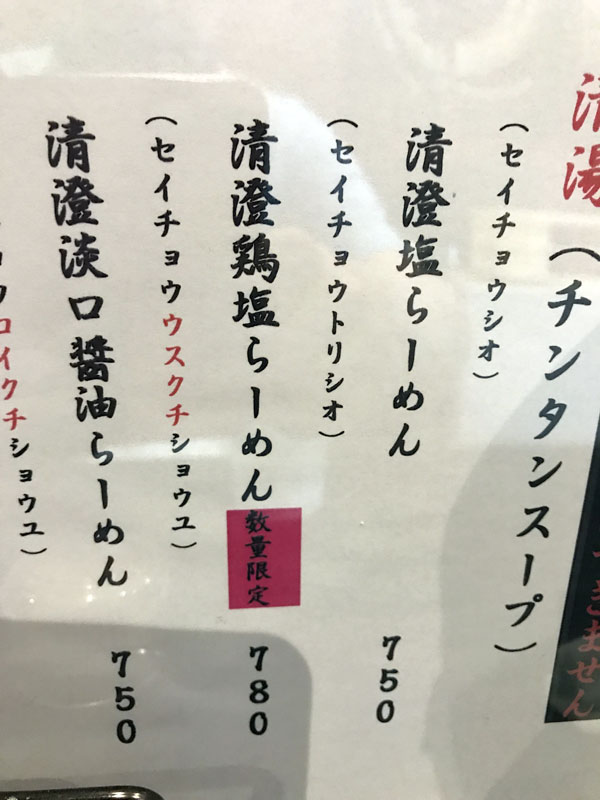 清湯(チンタンスープ)
(セイチョウシオ)
清澄塩らーめん
750
(セイチョウトリシオ)
清澄鶏塩らーめん
数量限定
780
(セイチョウウスクチショウユ)
清澄淡口醤油らーめん
750
ョウコイクチショウユ)
きません